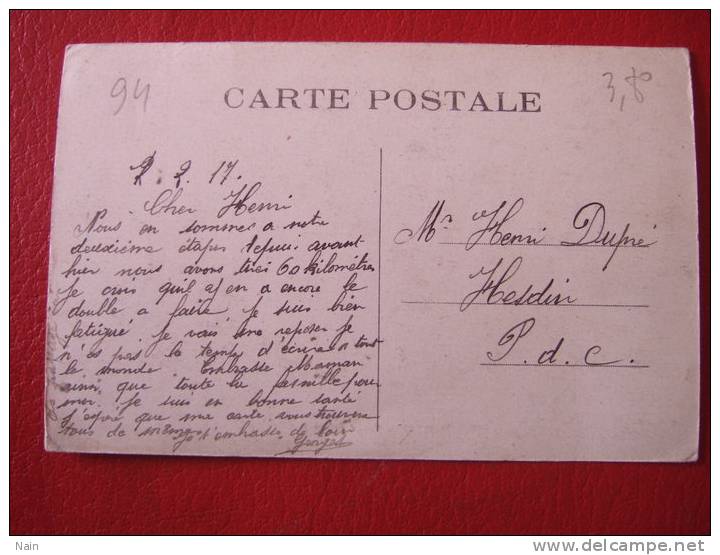 94
3,80
CARTE POSTALE
2. 2. 17.
Cher Henri
Nous en sommes a notre
deuxième étape depuis avant-
hier nous avons tirei 60 kilomètres
je crois quil y en a encore le
double a faire. Je suis bien
fatigué. Je vais me reposer je
n'ai pas le temps d'écrire a tout
le monde. Embrasse Maman
ainsi que toute la famille pour
moi. Je suis en bonne santé
j'espère que ma carte vous trouvera
tous de même. Je t'embrasse de loin
Georges
Mr Henri Dupré
Hesdin
P. d. c.
Nain
www.delcampe.net